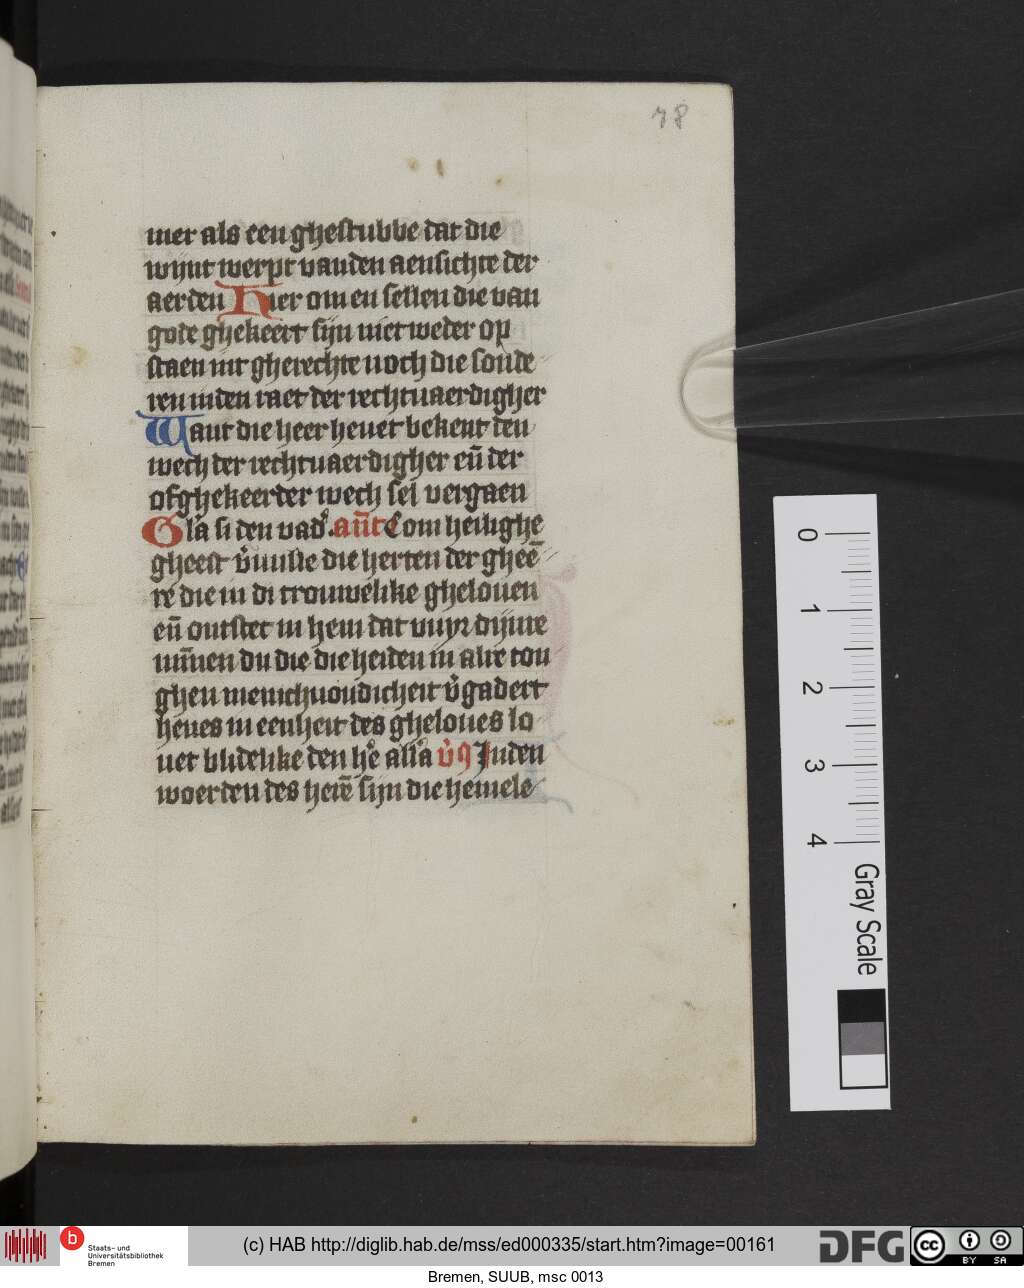 78
mer als een ghestubbe dat die
wijnt werpt vanden aensichte der
aerden Hier om en sellen die van
gode ghekeert sijn niet weder op
staen int gherechte noch die sonde
ren inden raet der rechtuaerdigher
Want die heer heuet bekent den
wech der rechtuaerdigher en̄ der
ofghekeerder wech sel vergaen
Gla si den vad'. ant̄ Com heilighe
gheest v'uulle die herten der gheē
re die in di trouwelike ghelouen
en̄ ontstect in hem dat vuyr dijnre
mīnen du die die heiden in alre ton
ghen menichuoudicheit v'gadert
heues in eenheit des gheloues lo
uet blidelike den he' all'a v's Inden
woerden des herē sijn die hemele
0
1
2
3
4
Gray Scale
b
Staats- und
Universitätsbibliothek
Bremen
(c) HAB http://diglib.hab.de/mss/ed000335/start.htm?image=00161
DFG
cc
BY SA
Bremen, SUUB, msc 0013